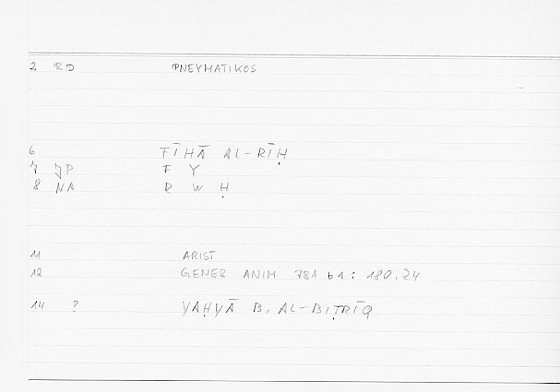 2 RD PNEYMATIKOS
6 FĪHĀ AL-RĪḤ
7 JP F Y
8 NA R W Ḥ
11 ARIST
12 GENER ANIM 781 b1: 180,24
14 ? YAḤYĀ B. AL-BIṬRĪQ